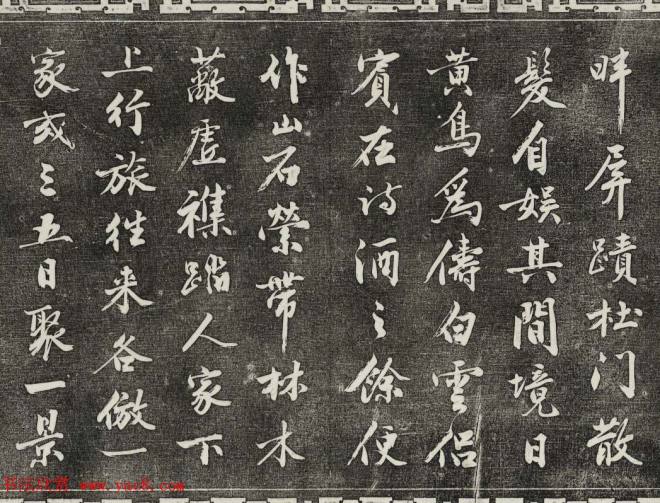 畔屏蹟杜门散
髮自娱其間境日
黄鳥爲儔白雲侣
賓在诗酒之餘便
作山石縈帶林木
蔽虚襍踏人家下
上行旅往来各倣一
家或三五日聚一景
www.yac8.com